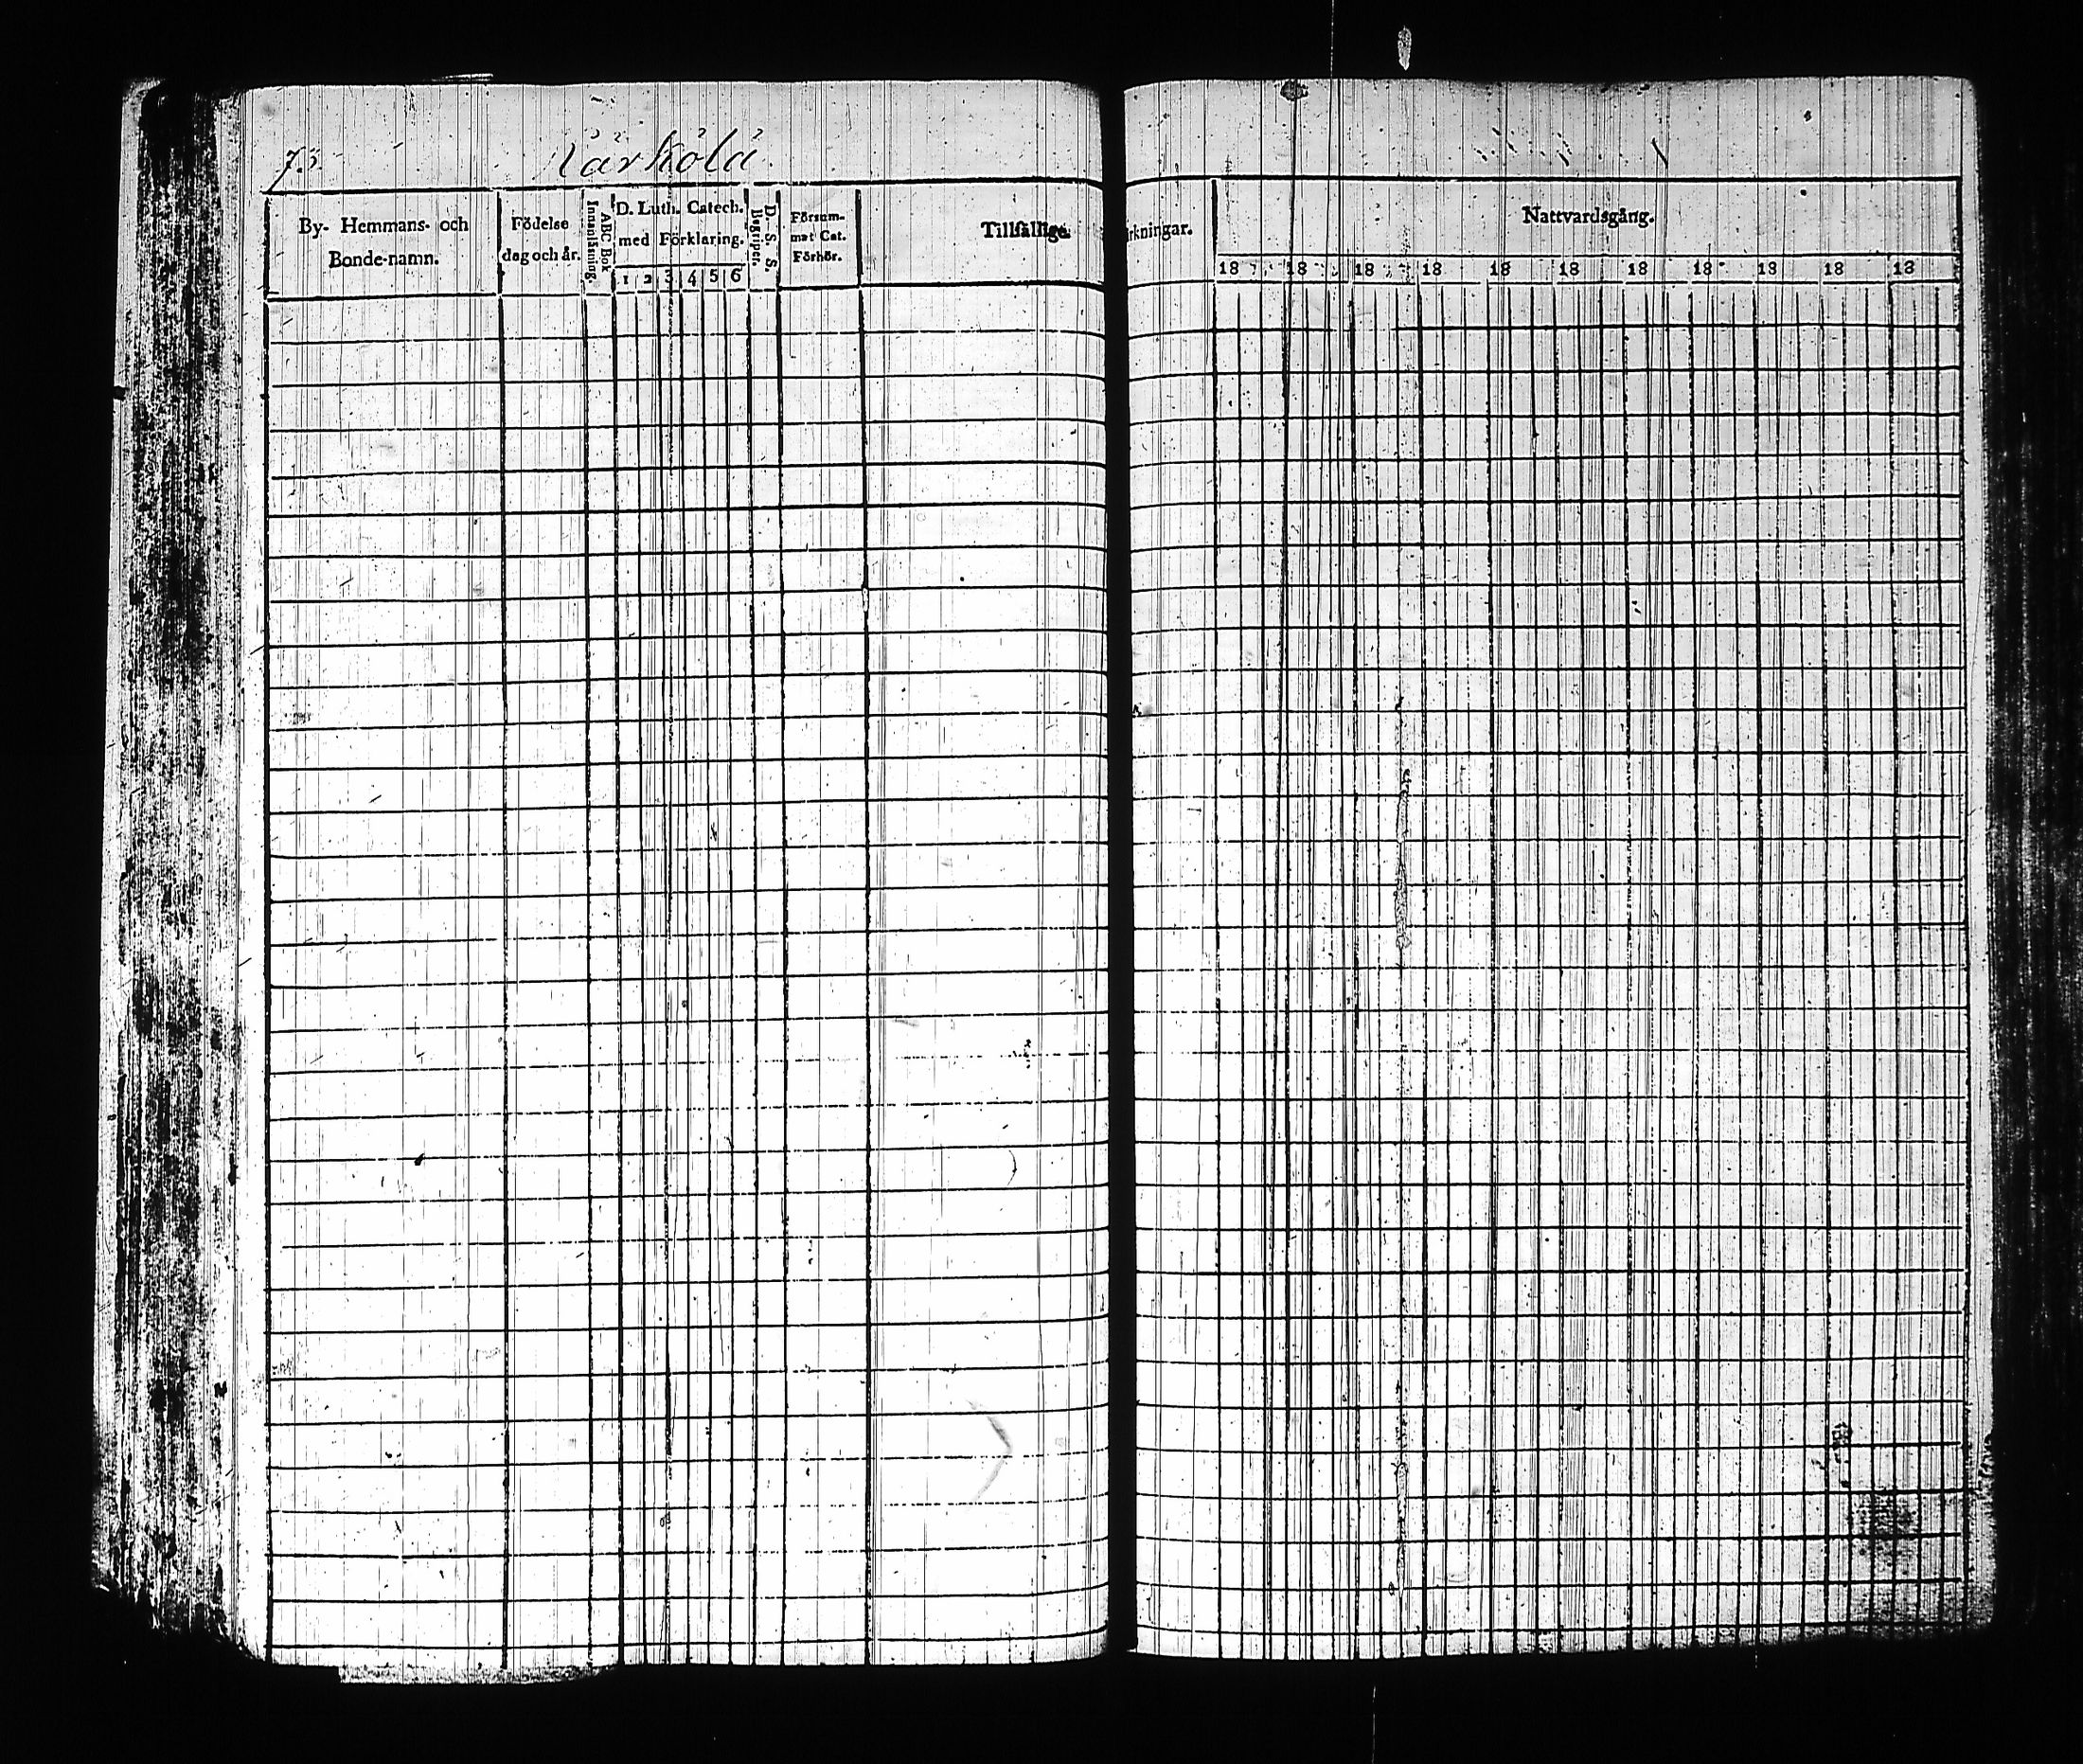 73. Kärkölä.
By- Hemmans- och
Bonde-namn.
Födelse
dag och år.
ABC Bok
Innanläsning.
D. Luth. Catech.
med Förklaring.
1 2 3 4 5 6
D. S. S.
Begriper.
Försum-
mat Cat.
Förhör.
Tillfällige
rkningar.
Nattvardsgång.
18 18 18 18 18 18 18 18 18 18 18